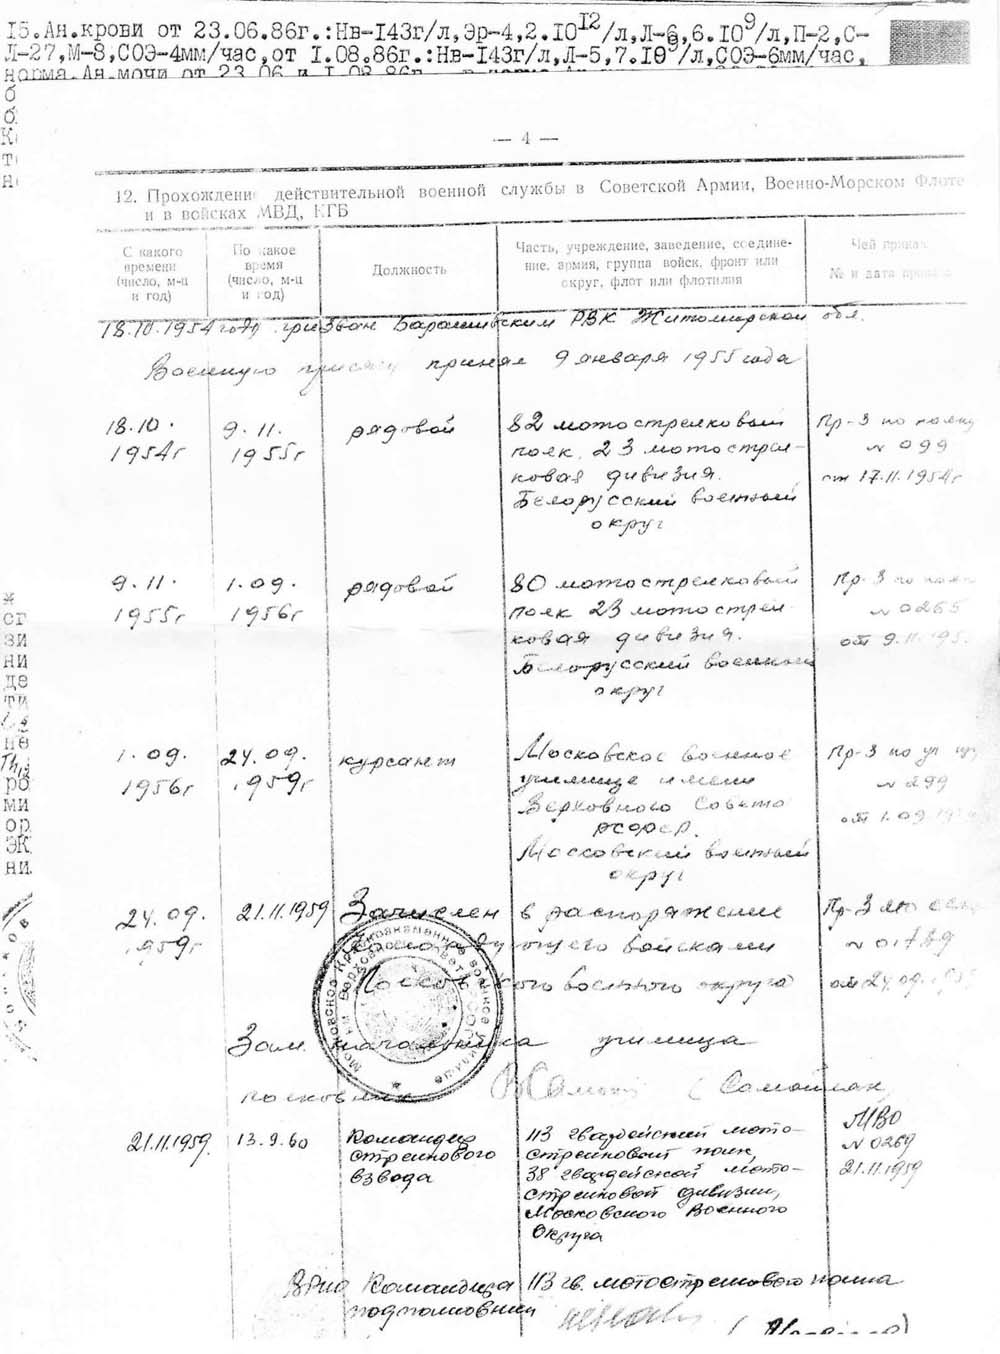 15.Ан.крови от 23.06.86г.:Нв-143г/л,Эр-4,2.10¹²/л,Л-6,6.10⁹/л,П-2,С-
Л-27,М-8,СОЭ-4мм/час,от 1.08.86г.:Нв-143г/л,Л-5,7.10⁹/л,СОЭ-6мм/час,
норма.Ан.мочи от 23.06 и 1.08.86г.
— 4 —
12. Прохождение действительной военной службы в Советской Армии, Военно-Морском Флоте
и в войсках МВД, КГБ
С какого
времени
(число, м-ц
и год)
По какое
время
(число, м-ц
и год)
Должность
Часть, учреждение, заведение, соедине-
ние, армия, группа войск, фронт или
округ, флот или флотилия
Чей приказ
№ и дата
18.10.1954 года призван РВК Житомирской обл.
Военную присягу принял 9 января 1955 года
18.10.
1954г
9.11.
1955г
рядовой
82 мотострелковый
полк 23 мотострел-
ковая дивизия.
Белорусский военный
округ
Пр-з по полку
№ 099
от 17.11.1954г
9.11.
1955г
1.09.
1956г
рядовой
80 мотострелковый
полк 23 мотострел-
ковая дивизия.
Белорусский военный
округ
Пр-з по
№ 0265
от 9.11.195
1.09.
1956г
24.09.
1959г
курсант
Московское военное
училище имени
Верховного Совета
РСФСР.
Московский военный
округ
Пр-з по уч
№ 299
от 1.09
24.09.
1959г
21.11.1959
Зачислен в распоряжение
Командующего войсками
Московского военного округа
Пр-з
№ 01789
от 24.09.
Московское Краснознаменное военное училище
им Верховного Совета РСФСР
Зам. начальника училища
полковник
21.11.1959.
13.9.60
Командир
стрелкового
взвода
113 гвардейский мото-
стрелковый полк,
38 гвардейской мото-
стрелковой дивизии,
Московского Военного
Округа
МВО
№ 0269
21.11.1959
Врио Командира 113 гв. мотострелкового полка
подполковник
ж
ст
зи
ни
де
ти
не
ро
ми
ор
эк
ни.